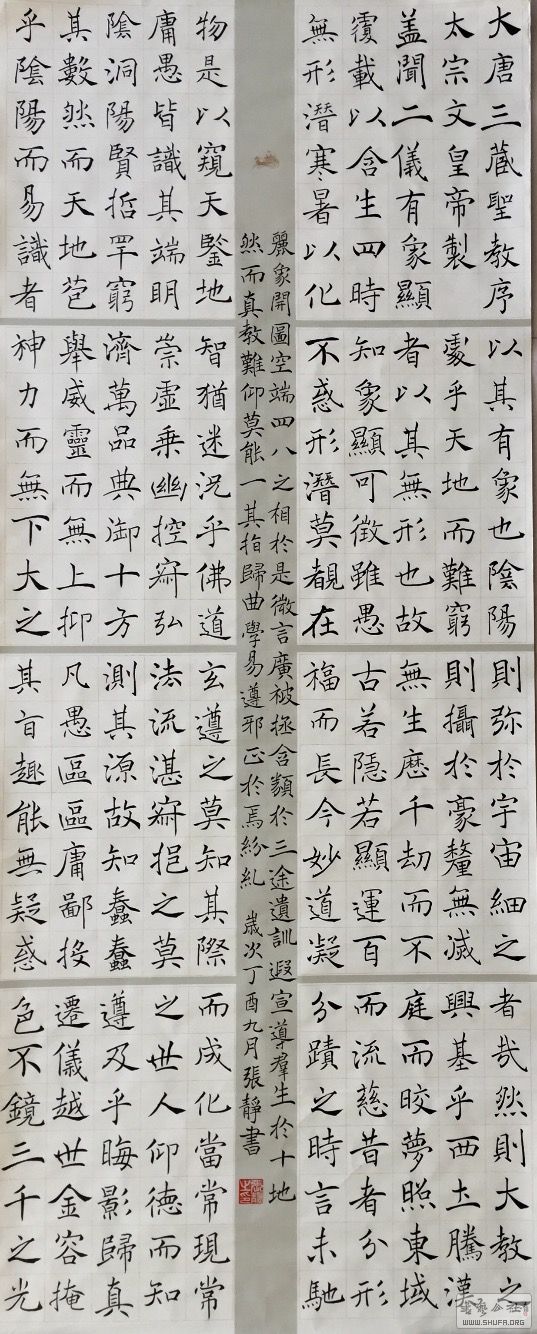 大唐三蔵聖教序
太宗文皇帝製
盖聞二儀有象顯
覆載以含生四時
無形潛寒暑以化
物是以窺天鑒地
庸愚皆識其端明
陰洞陽賢哲罕窮
其數然而天地苞
乎陰陽而易識者
以其有象也陰陽
處乎天地而難窮
者以其無形也故
知象顯可徵雖愚
不惑形潛莫覩在
智猶迷況乎佛道
崇虛乗幽控寂弘
濟萬品典御十方
舉威靈而無上抑
神力而無下大之
則弥於宇宙細之
則攝於豪釐無滅
無生歷千劫而不
古若隱若顯運百
福而長今妙道凝
玄遵之莫知其際
法流湛寂挹之莫
測其源故知蠢蠢
凡愚區區庸鄙投
其旨趣能無疑惑
者哉然則大教之
興基乎西土騰漢
庭而晈夢照東域
而流慈昔者分形
分蹟之時言未馳
而成化當常現常
之世人仰德而知
遵及乎晦影歸真
遷儀越世金容掩
色不鏡三千之光
麗象開圖空端四八之相於是微言廣被拯含類於三途遺訓遐宣導羣生於十地
然而真教難仰莫能一其指歸曲學易遵邪正於焉紛糺 嵗次丁酉九月張靜書
WWW.SHUFA.ORG